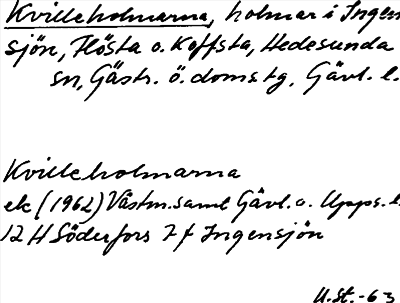 Kvilleholmarna, holmar i Ingen
sjön, Flösta o. Koffsta, Hedesunda
sn, Gästr. ö. doms. tg, Gävl. l.
Kvilleholmarna
ek (1962) Västm. saml Gävl. o. Upps. l.
12 H Söderfors 7 f Ingensjön
U.St.-63